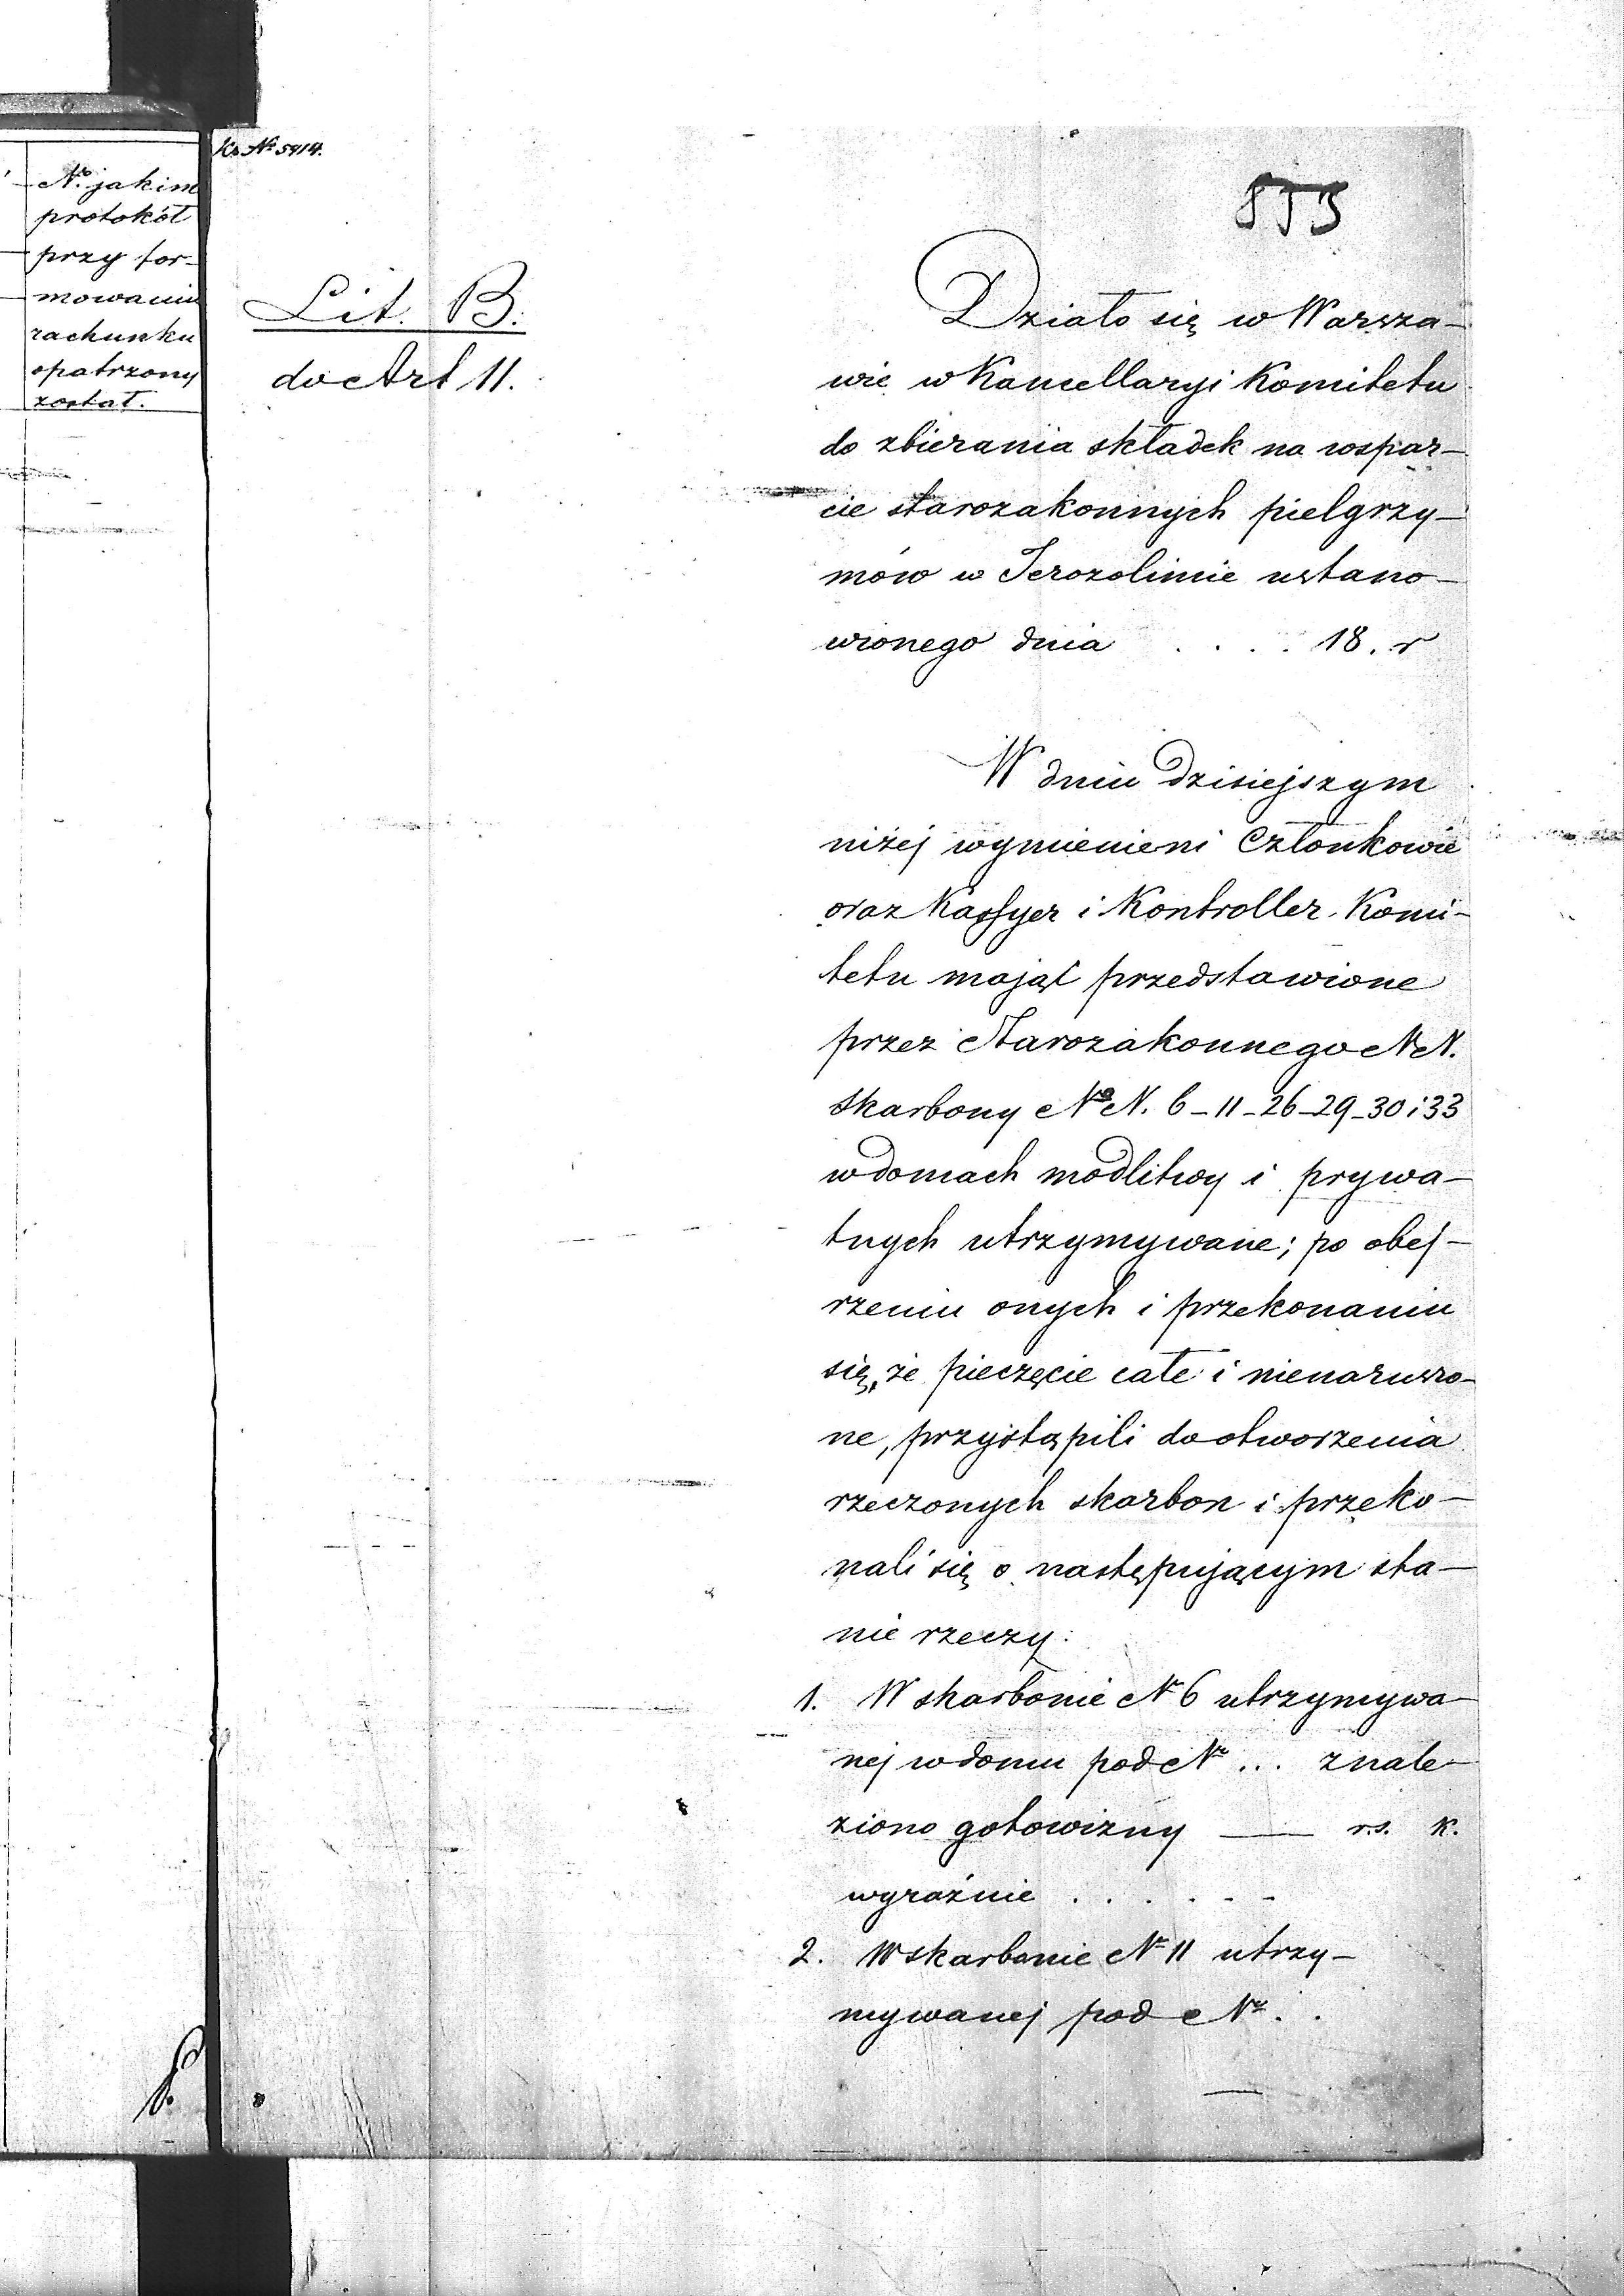 No. jakim
protokół
przy for-
mowaniu
rachunku
opatrzony
został.
Ks No 5914.
Lit. B.
do Art 11.
Działo się w Warsza-
wie w Kancellaryi Komitetu
do zbierania składek na wspar-
cie starozakonnych pielgrzy-
mów w Jerozolimie ustano-
wionego dnia . . . . 18. r
W dniu dzisiejszym
niżej wymienieni Członkowie
oraz Kassyer i Kontroller Komi-
tetu mając przedstawione
przez Starozakonnego N.N.
Skarbony No N. 6-11-26-29-30 i 33
w domach modlitwy i prywa-
tnych utrzymywane; po obej-
rzeniu onych i przekonaniu
się, że pieczęcie całe i nienaruszo-
ne, przystąpili do otworzenia
rzeczonych skarbon i przeko-
nali się o następującym sta-
nie rzeczy:
1. W skarbonie N 6 utrzymywa-
nej w domu pod Nr ... znale-
ziono gotowizny — r.s. k.
wyraźnie . . . . - -
2. W skarbonie Nr 11 utrzy-
mywanej pod Nr . .